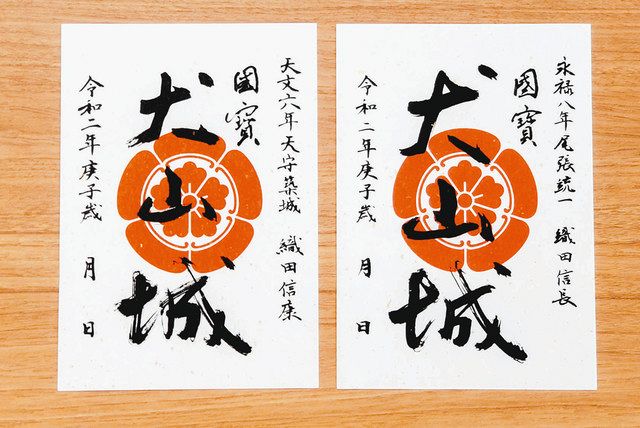 永禄八年尾張統一 織田信長
國寶
犬山城
令和二年庚子歳 月 日
天文六年天守築城 織田信康
國寶
犬山城
令和二年庚子歳 月 日